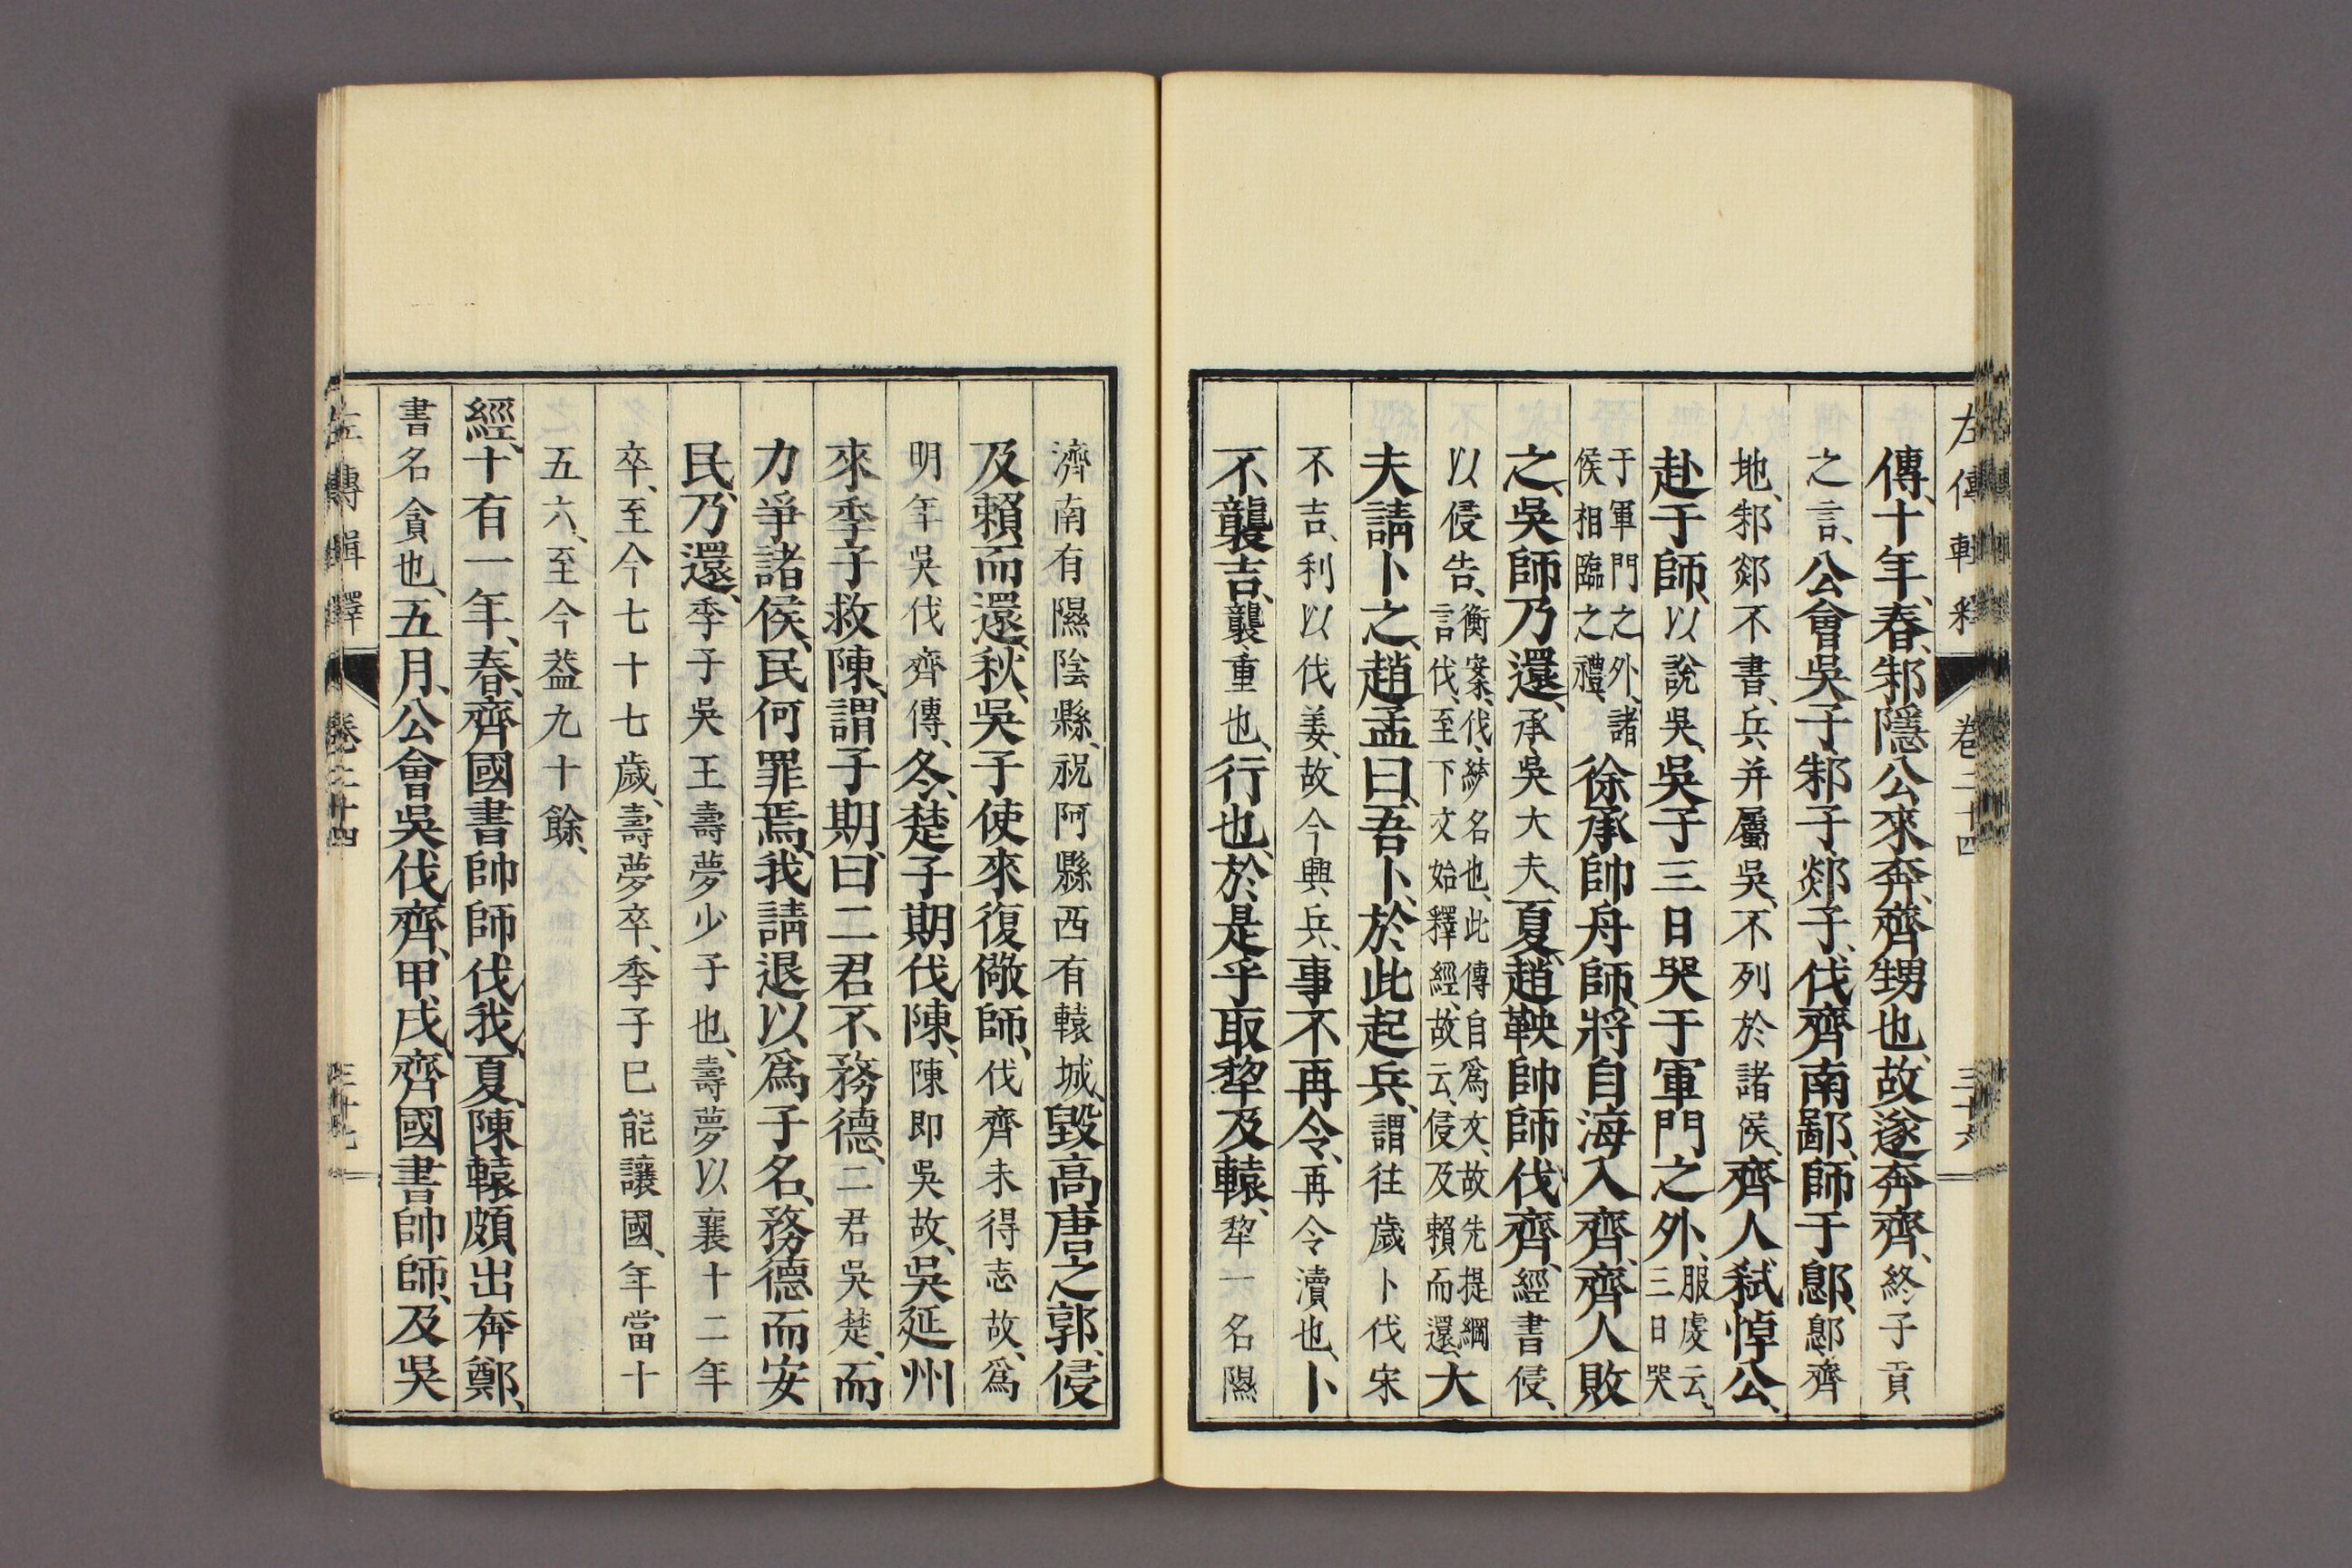 左傳輯釋 卷二十四 三十六
傳、十年、春、邾隱公來奔、齊甥也、故遂奔齊、終子貢
之言、公會吳子、邾子、郯子、伐齊南鄙、師于鄎、鄎、齊
地、邾郯不書、兵并屬吳、不列於諸侯、齊人弒悼公、
赴于師、以說吳、吳子三日哭于軍門之外、服虔云、三日哭
于軍門之外、諸侯相臨之禮、徐承帥舟師、將自海入齊、齊人敗
之、吳師乃還、承、吳大夫、夏、趙鞅帥師伐齊、經書侵、
以侵告、衡案、伐、綂名也、此傳自爲文、故先提綱言伐、至下文始釋經、故云、侵及賴而還、大
夫請卜之、趙孟曰、吾卜、於此起兵、謂往歲卜伐宋
不吉、利以伐姜、故今興兵、事不再令、再令瀆也、卜
不襲吉、襲、重也、行也、於是乎取犂及轅、犂一名隰
濟南有隰陰縣、祝阿縣西有轅城、毀高唐之郭、侵
及賴而還、秋、吳子使來復儆師、伐齊未得志故、爲
明年吳伐齊傳、冬、楚子期伐陳、陳即吳故、吳延州
來季子救陳、謂子期、曰二君不務德、二君吳楚、而
力爭諸侯、民何罪焉、我請退以爲子名、務德而安
民、乃還、季子吳王壽夢少子也、壽夢以襄十二年
卒、至今七十七歲、壽夢卒、季子已能讓國、年當十
五六、至今葢九十餘、
經、十有一年、春、齊國書帥師伐我、夏、陳轅頗出奔鄭、
書名、貪也、五月、公會吳伐齊、甲戌、齊國書帥師、及吳
左傳輯釋 卷二十四 三十七